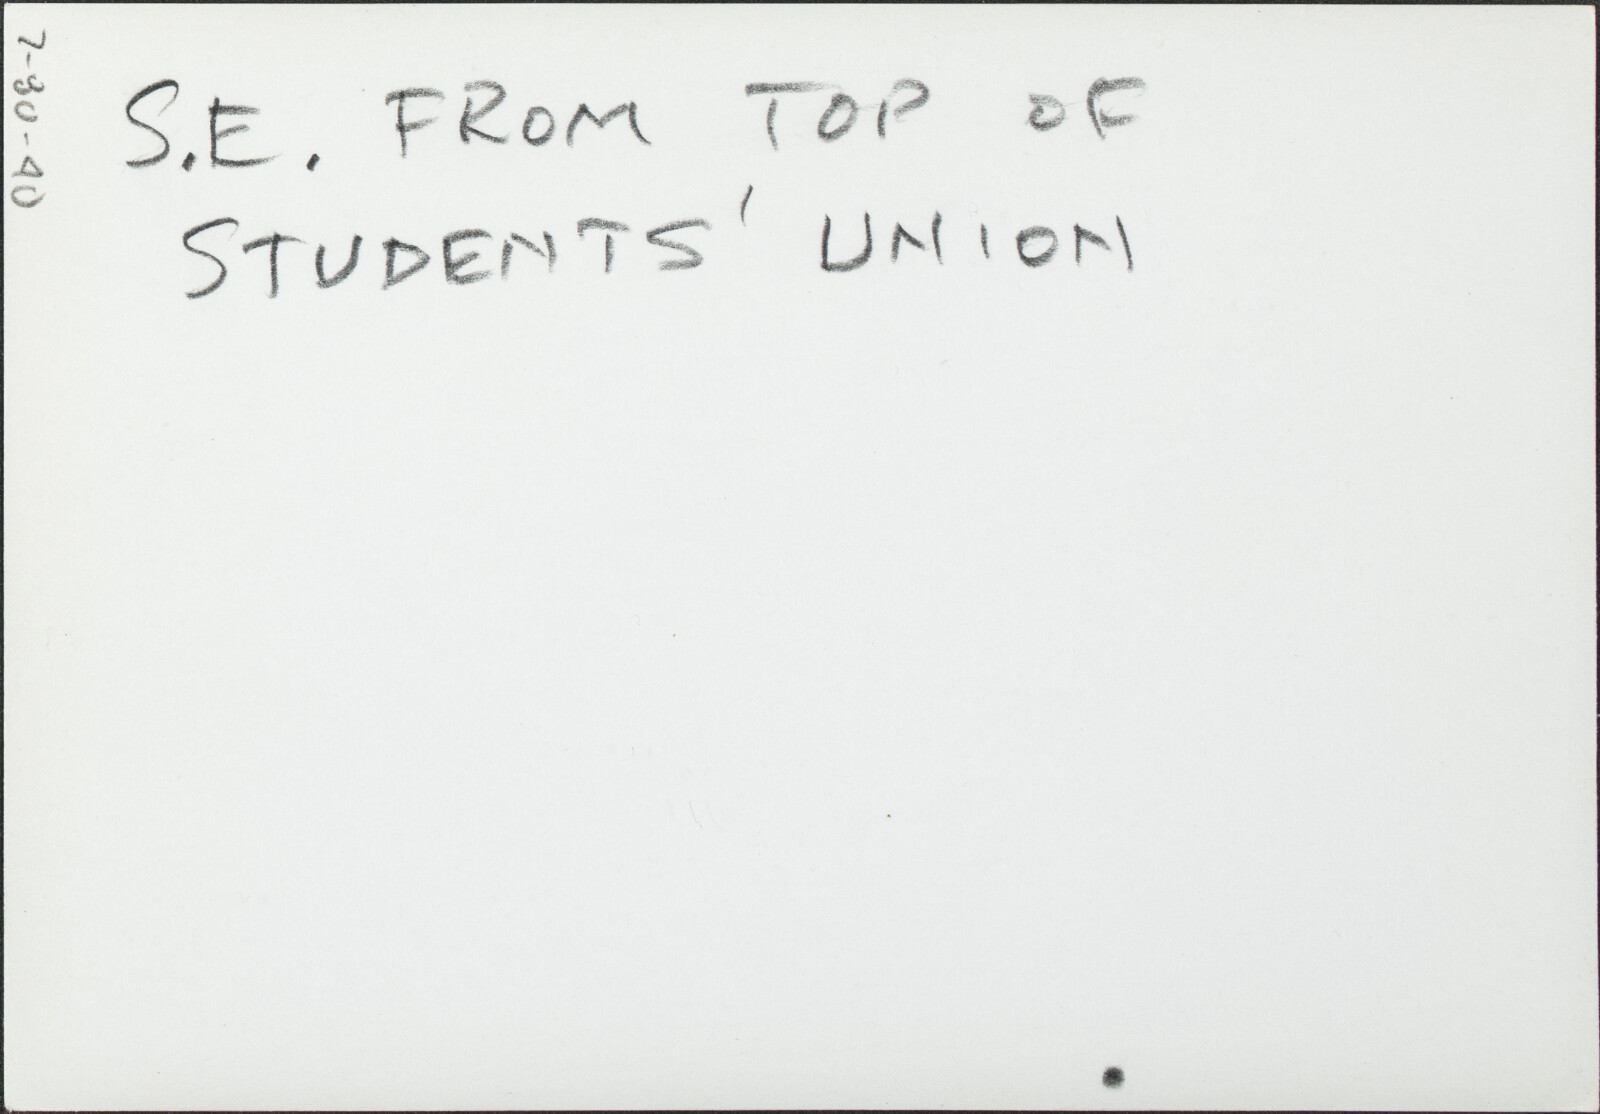 S.E. FROM TOP OF
STUDENTS' UNION
7-80-40